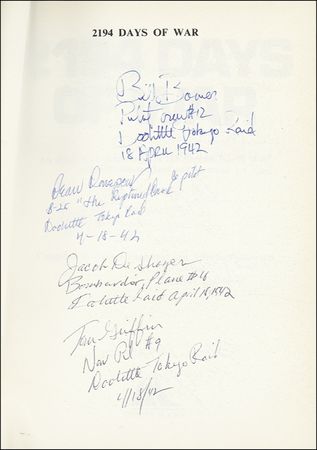 2194 DAYS OF WAR
Bill Bower
Pilot crew #12
Doolittle Tokyo Raid
18 April 1942
Co pilot
B-25 "The Ruptured Duck"
Doolittle Tokyo Raid
4-18-42
Jacob DeShazer
Bombardier, Plane #16
Doolittle Raid April 18, 1942
Tom Griffin
Nav Pl #9
Doolittle Tokyo Raid
4/18/42